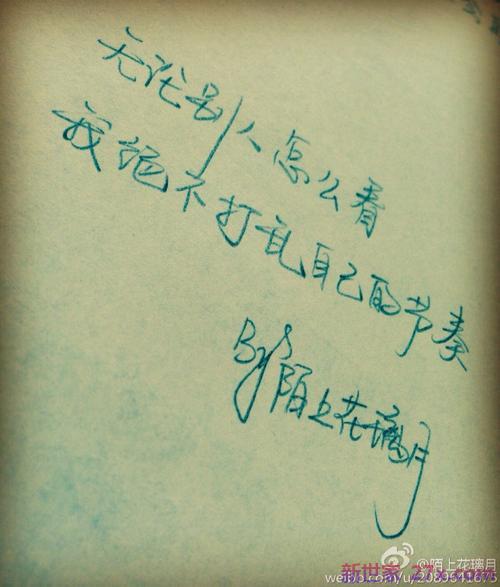 无论别人怎么看
我绝不打乱自己的节奏
By 陌上花璃月
@陌上花璃月
新世家